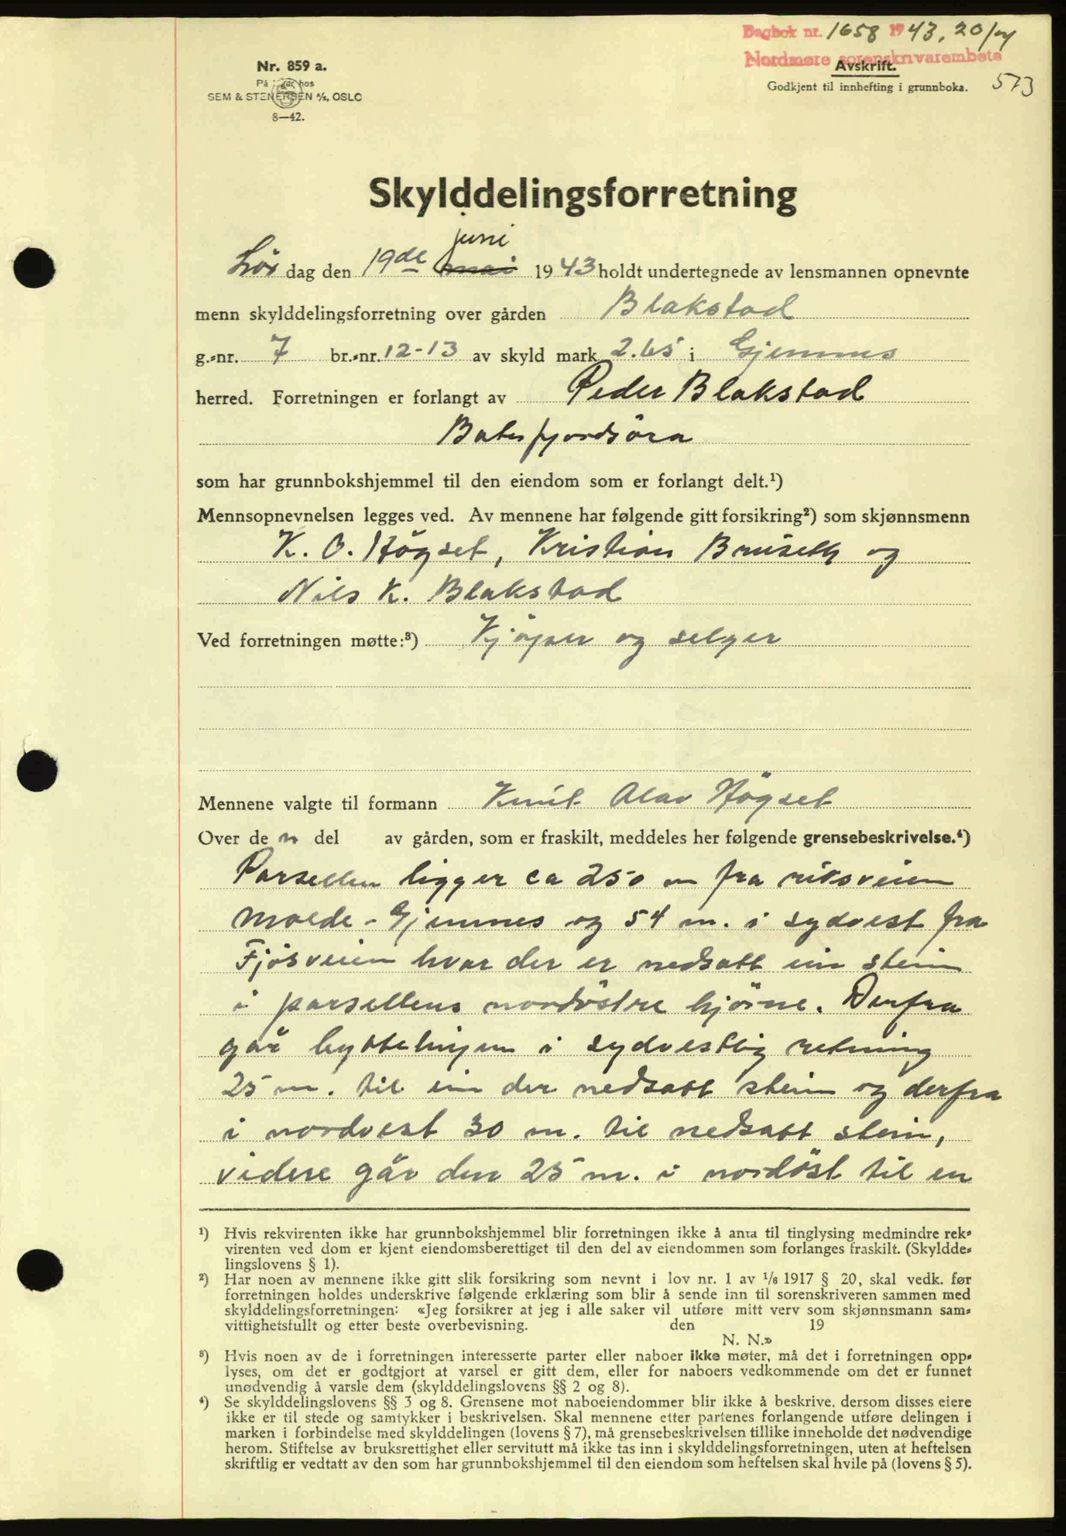 Dagbok nr. 1658 1943, 20/7
Nordmøre sorenskriverembete
573
Nr. 859 a.
På lager hos
SEM & STENERSEN A/S, OSLO
8—42.
Avskrift.
Godkjent til innhefting i grunnboka.
Skylddelingsforretning
juni
Lør dag den 19de mai 1943 holdt undertegnede av lensmannen opnevnte
menn skylddelingsforretning over gården Blakstad
g.-nr. 7 br.-nr. 12-13 av skyld mark 2.65 i Gjemnes
herred. Forretningen er forlangt av Peder Blakstad
Batnfjordsöra
som har grunnbokshjemmel til den eiendom som er forlangt delt.¹)
Mennsopnevnelsen legges ved. Av mennene har følgende gitt forsikring²) som skjønnsmenn
K. O. Högset, Kristian Bruseth og
Nils K. Blakstad
Ved forretningen møtte:³) Kjöper og selger
Mennene valgte til formann Knut Olav Högset
Over de n del av gården, som er fraskilt, meddeles her følgende grensebeskrivelse.⁴)
Parsellen ligger ca 250 m fra riksveien
Molde - Gjemnes og 54 m. i sydvest fra
Fjösveien hvor der er nedsatt ein stein
i parsellens nordöstre hjörne. Derfra
går byttelinjen i sydvestlig retning
25 m. til ein der nedsatt stein og derfra
i nordvest 30 m. til nedsatt stein,
videre går den 25 m. i nordöst til en
¹) Hvis rekvirenten ikke har grunnbokshjemmel blir forretningen ikke å anta til tinglysing medmindre rek-
virenten ved dom er kjent eiendomsberettiget til den del av eiendommen som forlanges fraskilt. (Skyldde-
lingslovens § 1).
²) Har noen av mennene ikke gitt slik forsikring som nevnt i lov nr. 1 av ¹/₆ 1917 § 20, skal vedk. før
forretningen holdes underskrive følgende erklæring som blir å sende inn til sorenskriveren sammen med
skylddelingsforretningen: «Jeg forsikrer at jeg i alle saker vil utføre mitt verv som skjønnsmann sam-
vittighetsfullt og etter beste overbevisning. den 19
N. N.»
³) Hvis noen av de i forretningen interesserte parter eller naboer ikke møter, må det i forretningen opp-
lyses, om det er godtgjort at varsel er gitt dem, eller for naboers vedkommende om det er funnet
unødvendig å varsle dem (skylddelingslovens §§ 2 og 8).
⁴) Se skylddelingslovens §§ 3 og 8. Grensene mot naboeiendommer blir ikke å beskrive, dersom disses eiere
ikke er til stede og samtykker i beskrivelsen. Skal mennene etter partenes forlangende utføre delingen i
marken i forbindelse med skylddelingen (lovens § 7), må grensebeskrivelsen tillike inneholde det nødvendige
herom. Stiftelse av bruksrettighet eller servitutt må ikke tas inn i skylddelingsforretningen, uten at heftelsen
skriftlig er vedtatt av den som har grunnbokshjemmel til den eiendom som heftelsen skal hvile på (lovens § 5).